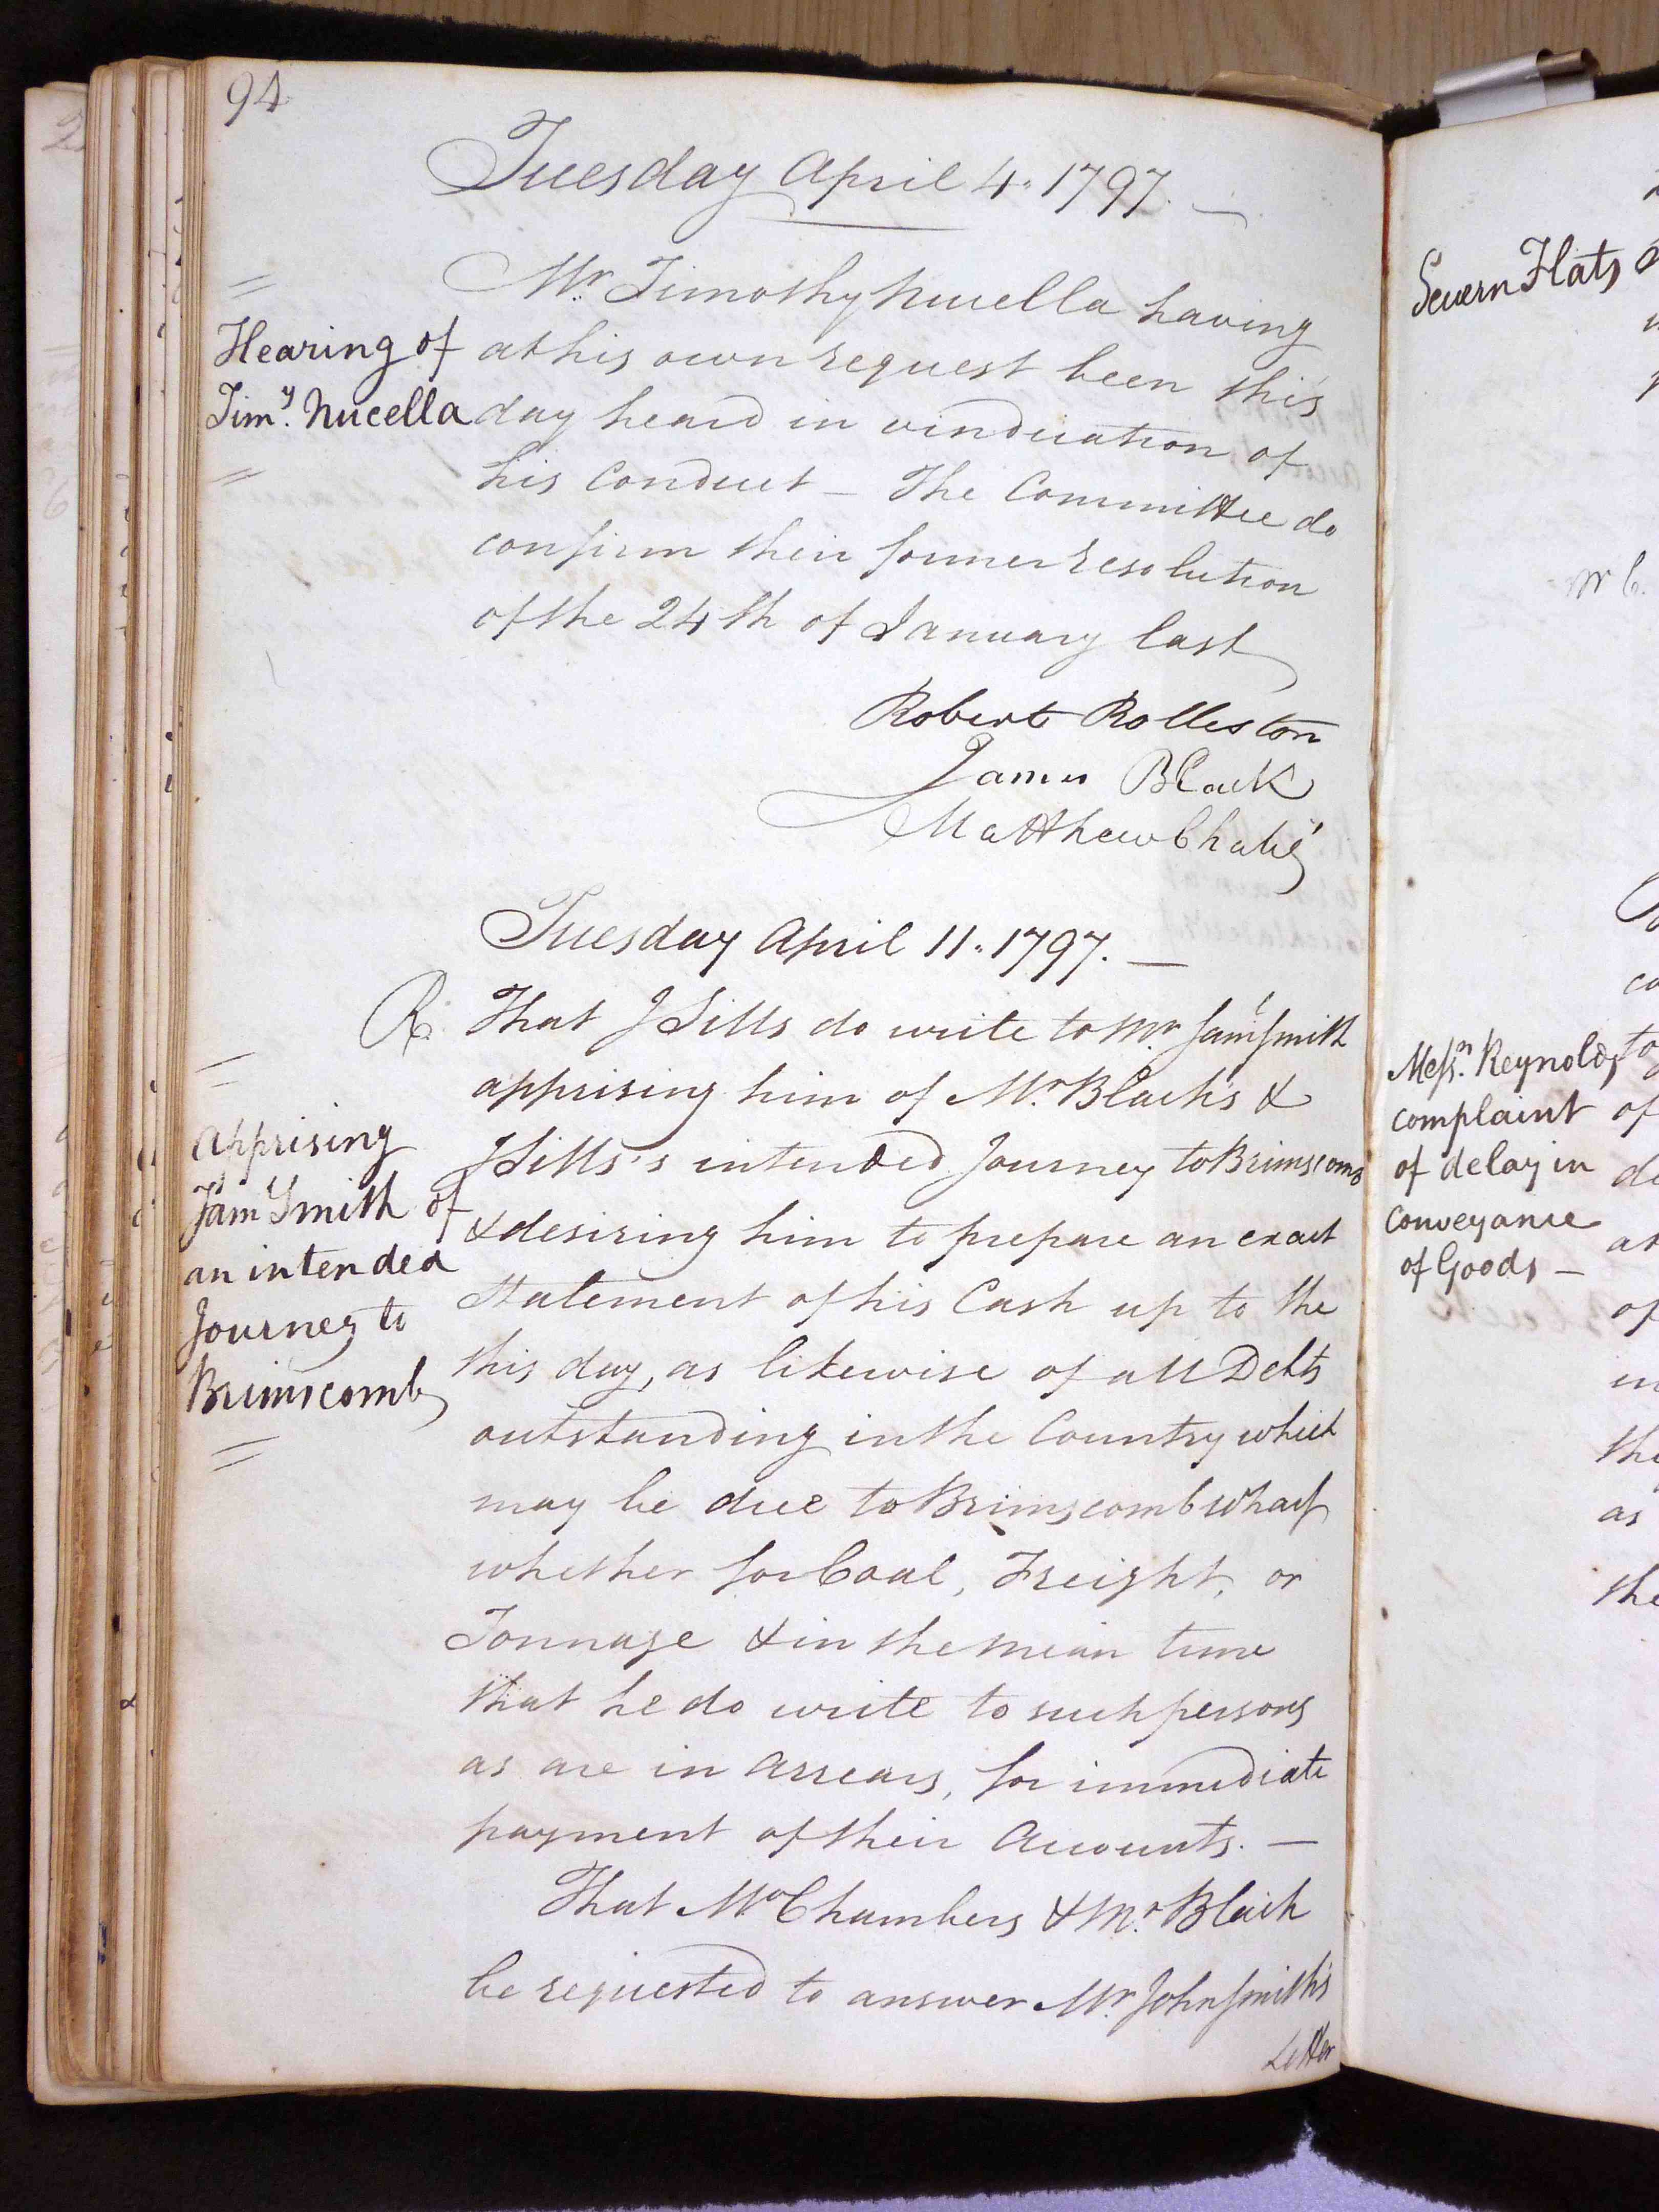 94
Tuesday April 4. 1797. —
Mr. Timothy Nucella having
at his own request been this
day heard in vindication of
his Conduct — The Committee do
confirm their former resolution
of the 24th of January last
Hearing of
Timy. Nucella
Robert Rolleston
James Black
Matthew
Tuesday April 11. 1797. —
R. That J Sills do write to Mr Jams Smith
apprising him of Mr. Black's &
J Sills's intended Journey to Brimscomb
& desiring him to prepare an exact
Statement of his Cash up to the
this day, as likewise of all Debts
outstanding in the Country which
may be due to Brimscomb Wharf
whether for Coal, Freight, or
Tonnage & in the mean time
that he do write to such persons
as are in Arrears, for immediate
payment of their Accounts. —
That Mr Chambers & Mr. Black
be requested to answer Mr. John Smith's
Letter
Apprising
Jams Smith of
an intended
Journey to
Brimscomb
Severn Flats
Messrs. Reynolds
complaint
of delay in
conveyance
of Goods —
to
of
of
in
the
as
the